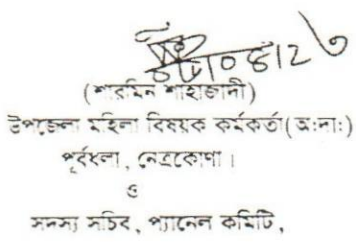 (শারমিন শাহাজাদী)
উপজেলা মহিলা বিষয়ক কর্মকর্তা(অ:দা:)
পূর্বধলা, নেত্রকোণা।
ও
সদস্য সচিব, প্যানেল কমিটি,